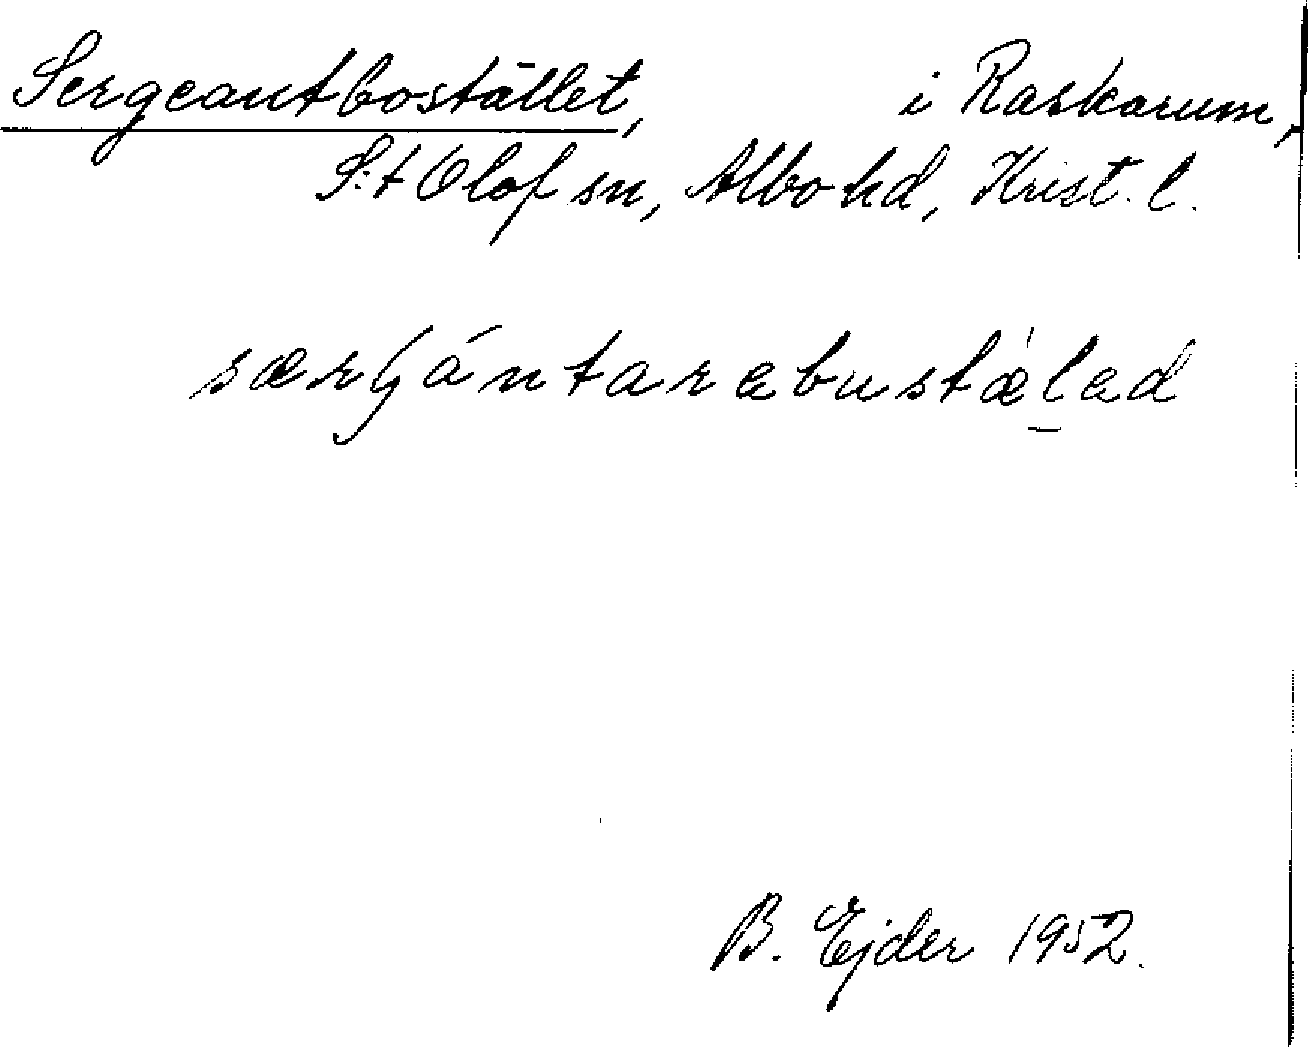 Sergeantbostället, i Raskarum,
S:t Olof sn, Albo hd, Krist. l.
særʃántarabustæ̀l̠ad
B. Ejder 1952.